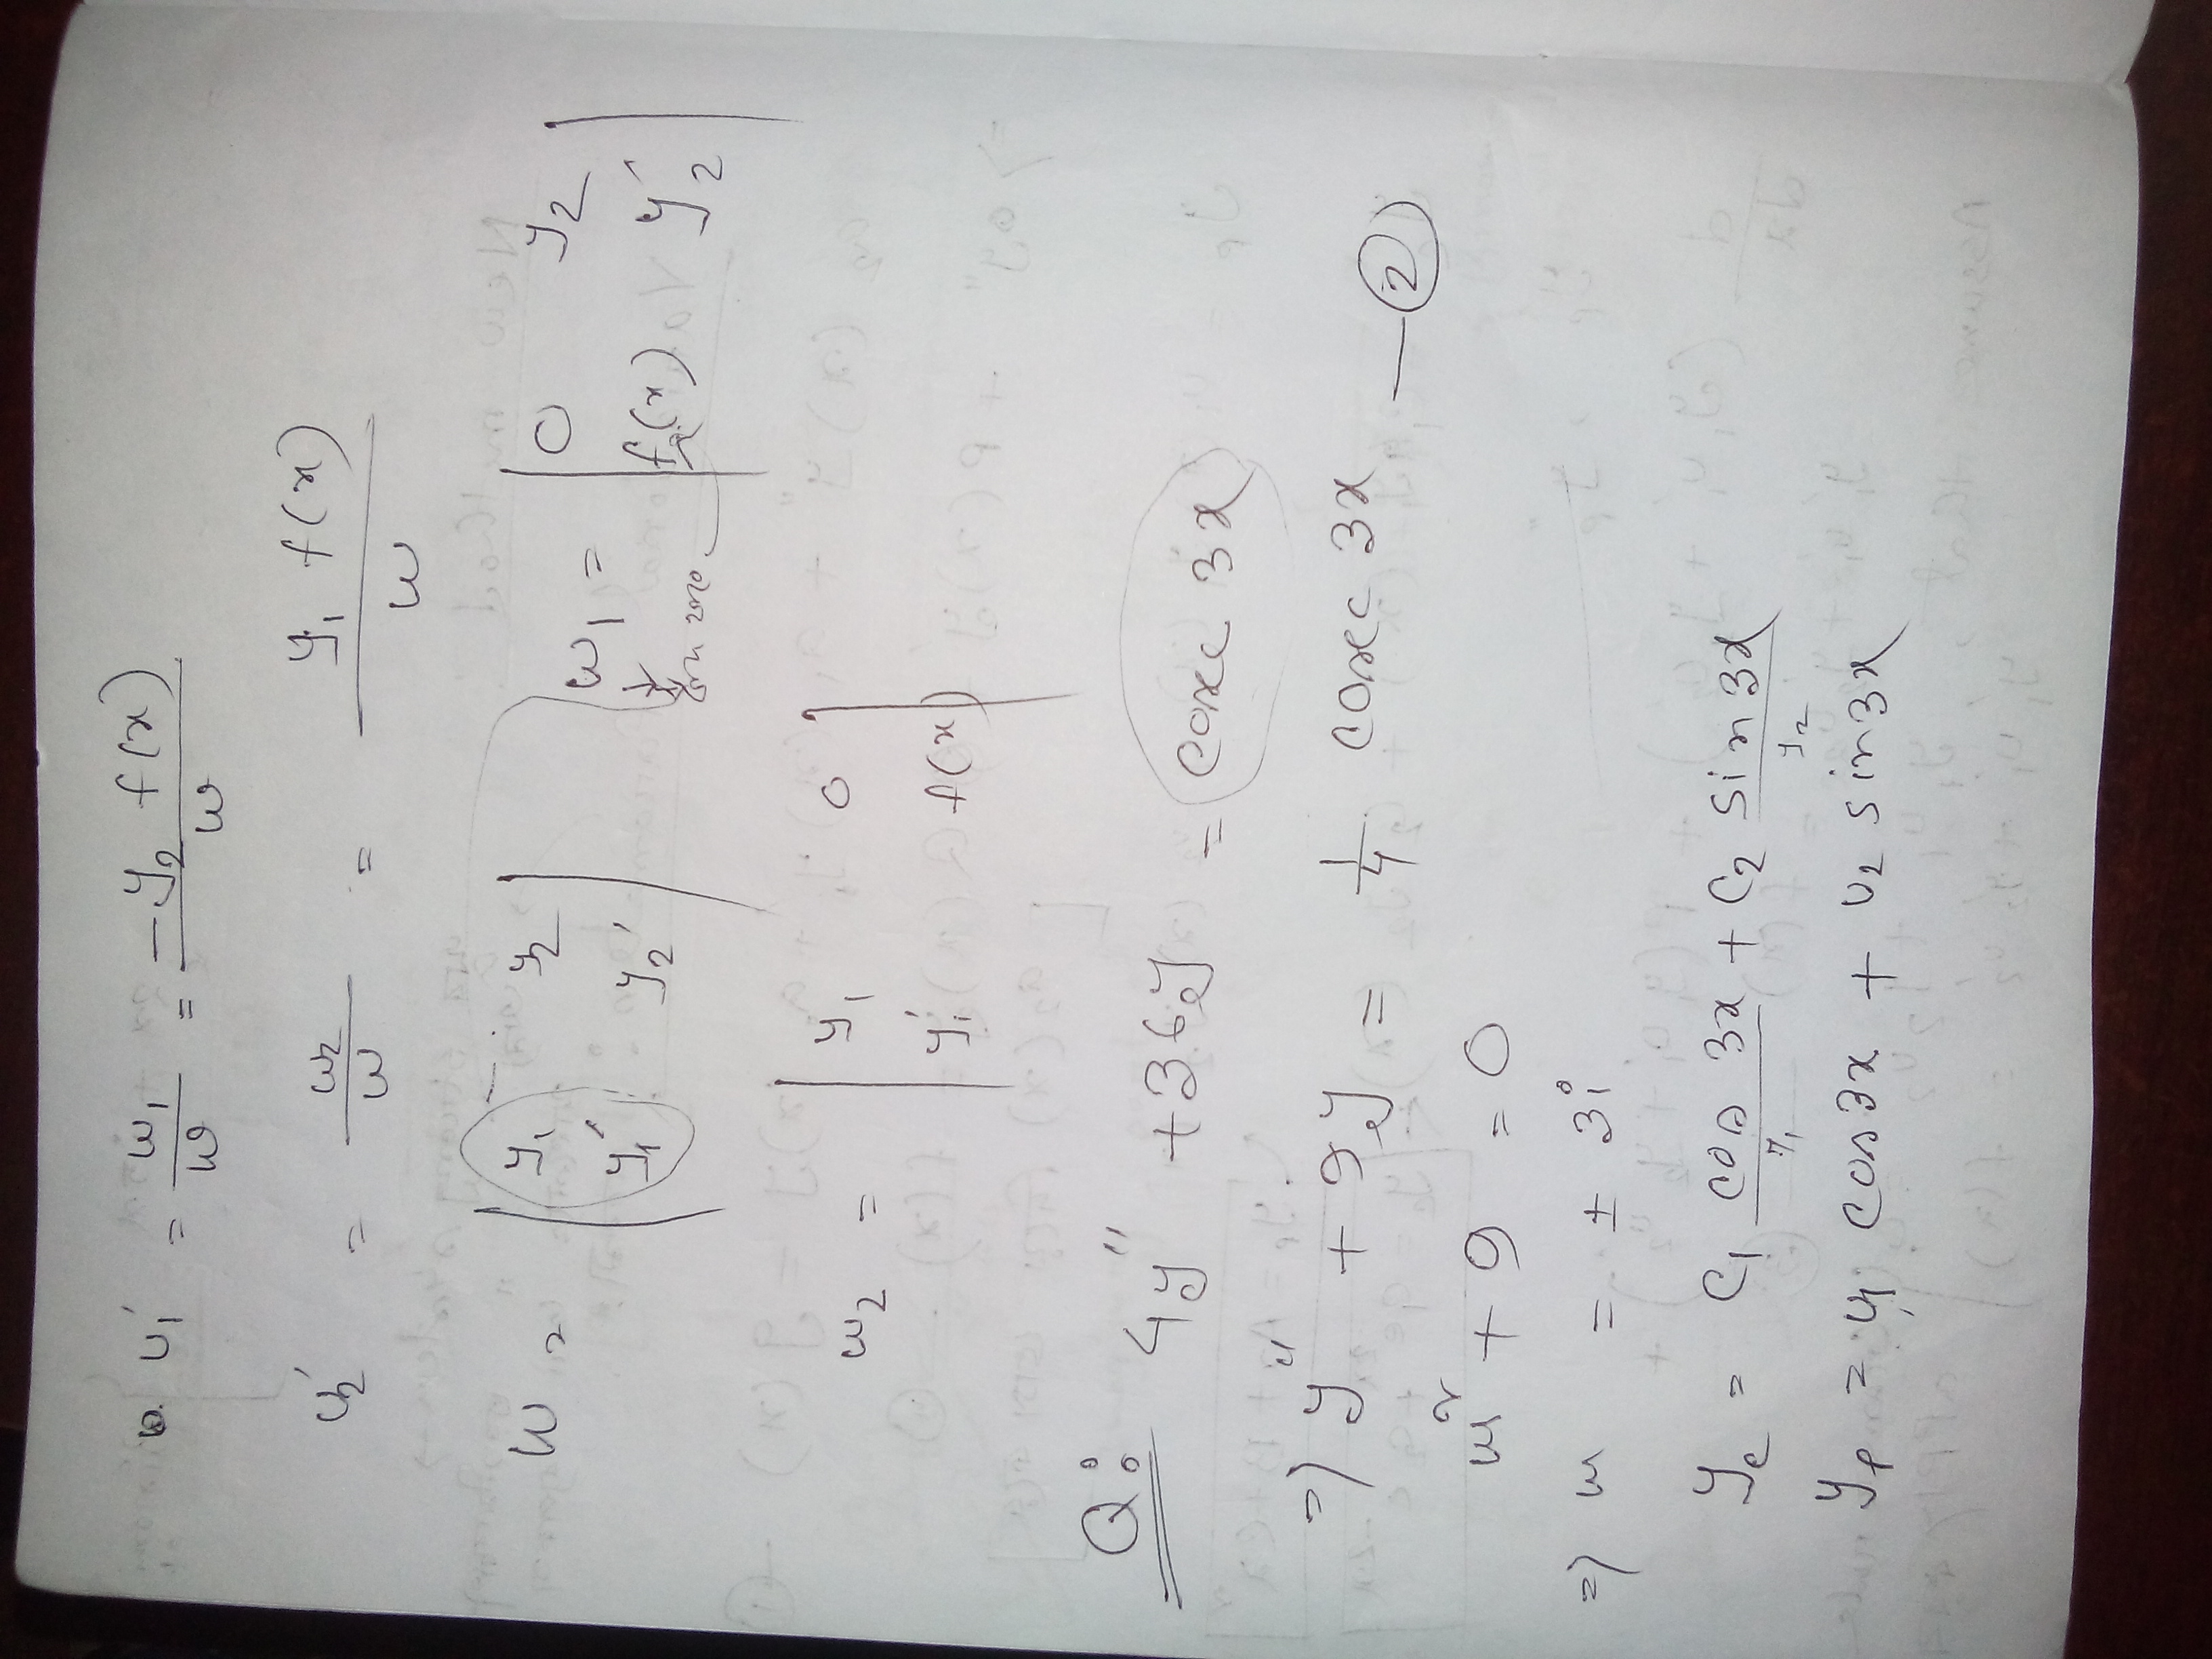 u₁' = w₁/w = -y₂ f(x)/w
u₂' = w₂/w = y₁ f(x)/w
w = | y₁ y₂ | w₁ = | 0 y₂ |
| y₁' y₂' | | f(x) y₂' |
w₂ = | y₁ 0 |
| y₁' f(x) |
Q: 4y'' + 36y = cosec 3x
=> y'' + 9y = 1/4 cosec 3x — ②
m² + 9 = 0
=> m = ± 3i
y_c = c₁ cos 3x + c₂ sin 3x
y₁ y₂
y_p = u₁ cos 3x + u₂ sin 3x